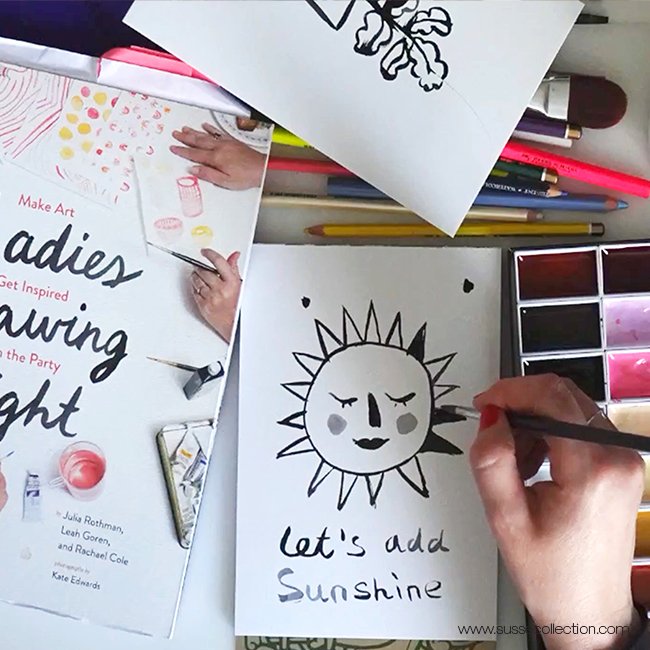 Make Art
adies
Get Inspired
awing
the Party
ght
by
Julia Rothman,
Leah Goren,
and Rachael Cole
photographs by
Kate Edwards
Let's add
Sunshine